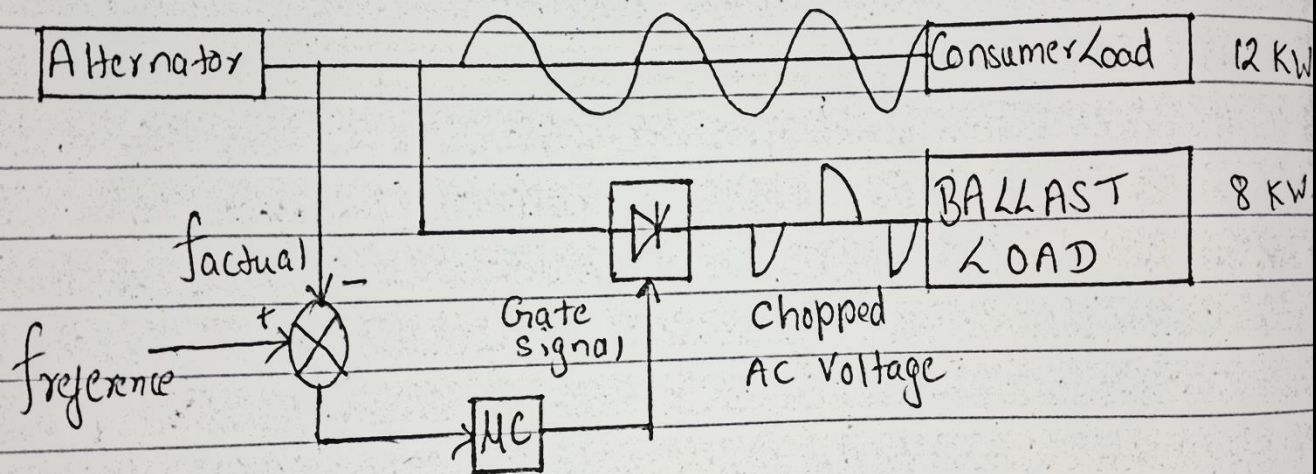 Alternator
Consumer Load
12 KW
BALLAST
LOAD
8 KW
factual
−
+
freference
Gate
signal
chopped
AC Voltage
MC